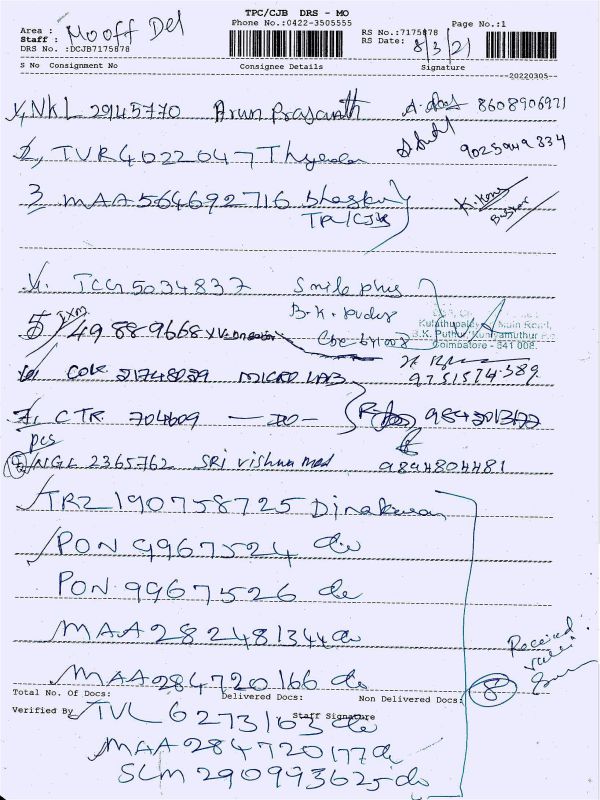 TPC/CJB DRS - MO
Phone No.:0422-3505555
Page No.:1
Area : Mo off Del
Staff :
DRS No. :DCJB7175878
RS No.:7175878
RS Date: 8/3/21
S No Consignment No Consignee Details Signature
20220305
1, NKL 29145770 Arun Prasanth 8608906921
2, TVR 4022047 9025949334
3, MAA 564692716 Bhaskar
TPC/CJB
4. TCG 5034837 Smile plus
B.K. Pudur
Cbe-641008
Main Road,
B.K. Puthur, Kuniyamuthur P.O
Coimbatore - 641 008.
5
9751574389
21748029 MICRO LAB
7, CTR 704609 — DO —
pcs
8 NGL 2365762 SRI Vishnu Med 9894804481
TRZ 190758725 Dinakaran
PON 9967524 do
PON 9967526 do
MAA 282481344 do
MAA 284720166 do
Received
8
Total No. Of Docs: Delivered Docs: Non Delivered Docs:
Verified By Staff Signature
TVL 6273163 do
MAA 284720177 do
SLM 290993625 do